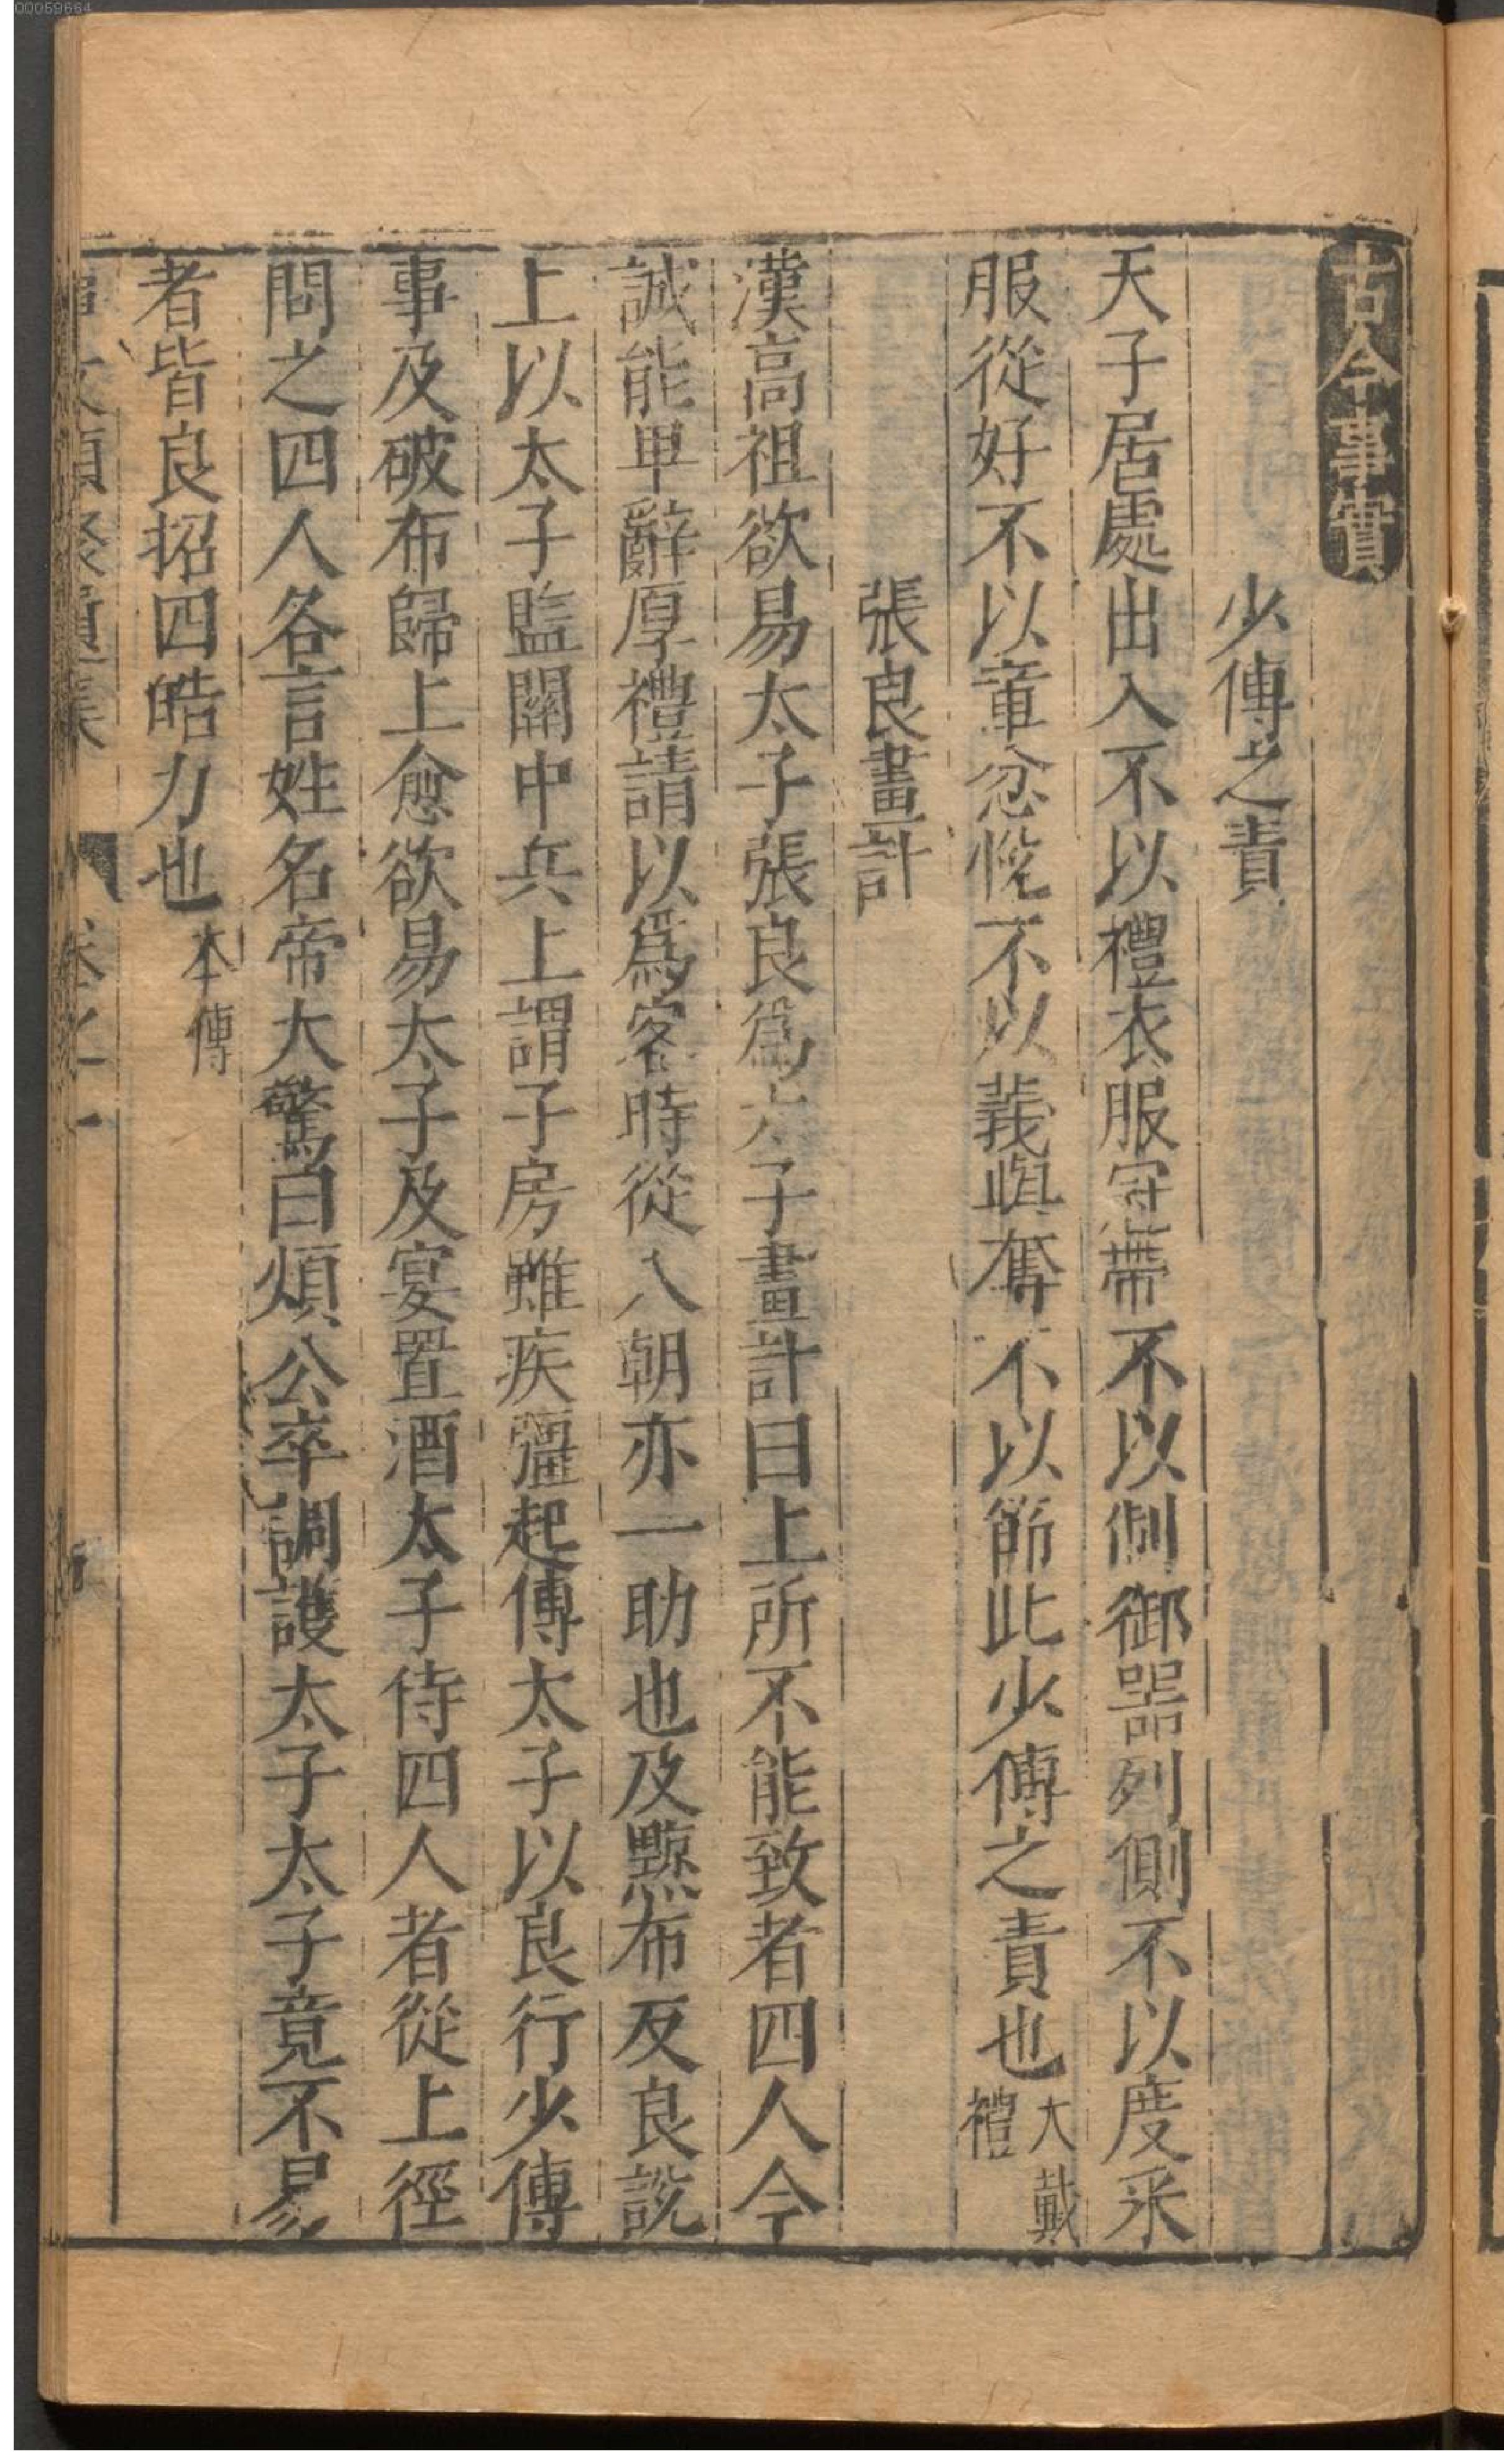 古今事實
少傅之責
天子居處出入不以禮衣服冠帶不以制御器列側不以度采
服從好不以章忿悅不以義與奪不以節此少傅之責也大戴禮
張良畫計
漢高祖欲易太子張良爲太子畫計曰上所不能致者四人今
誠能卑辭厚禮請以爲客時從入朝亦一助也及黥布反良說
上以太子監關中兵上謂子房雖疾彊起傅太子以良行少傅
事及破布歸上愈欲易太子及宴置酒太子侍四人者從上徑
問之四人各言姓名帝大驚曰煩公卒調護太子太子竟不易
者皆良招四皓力也本傳
卷之一
00059664